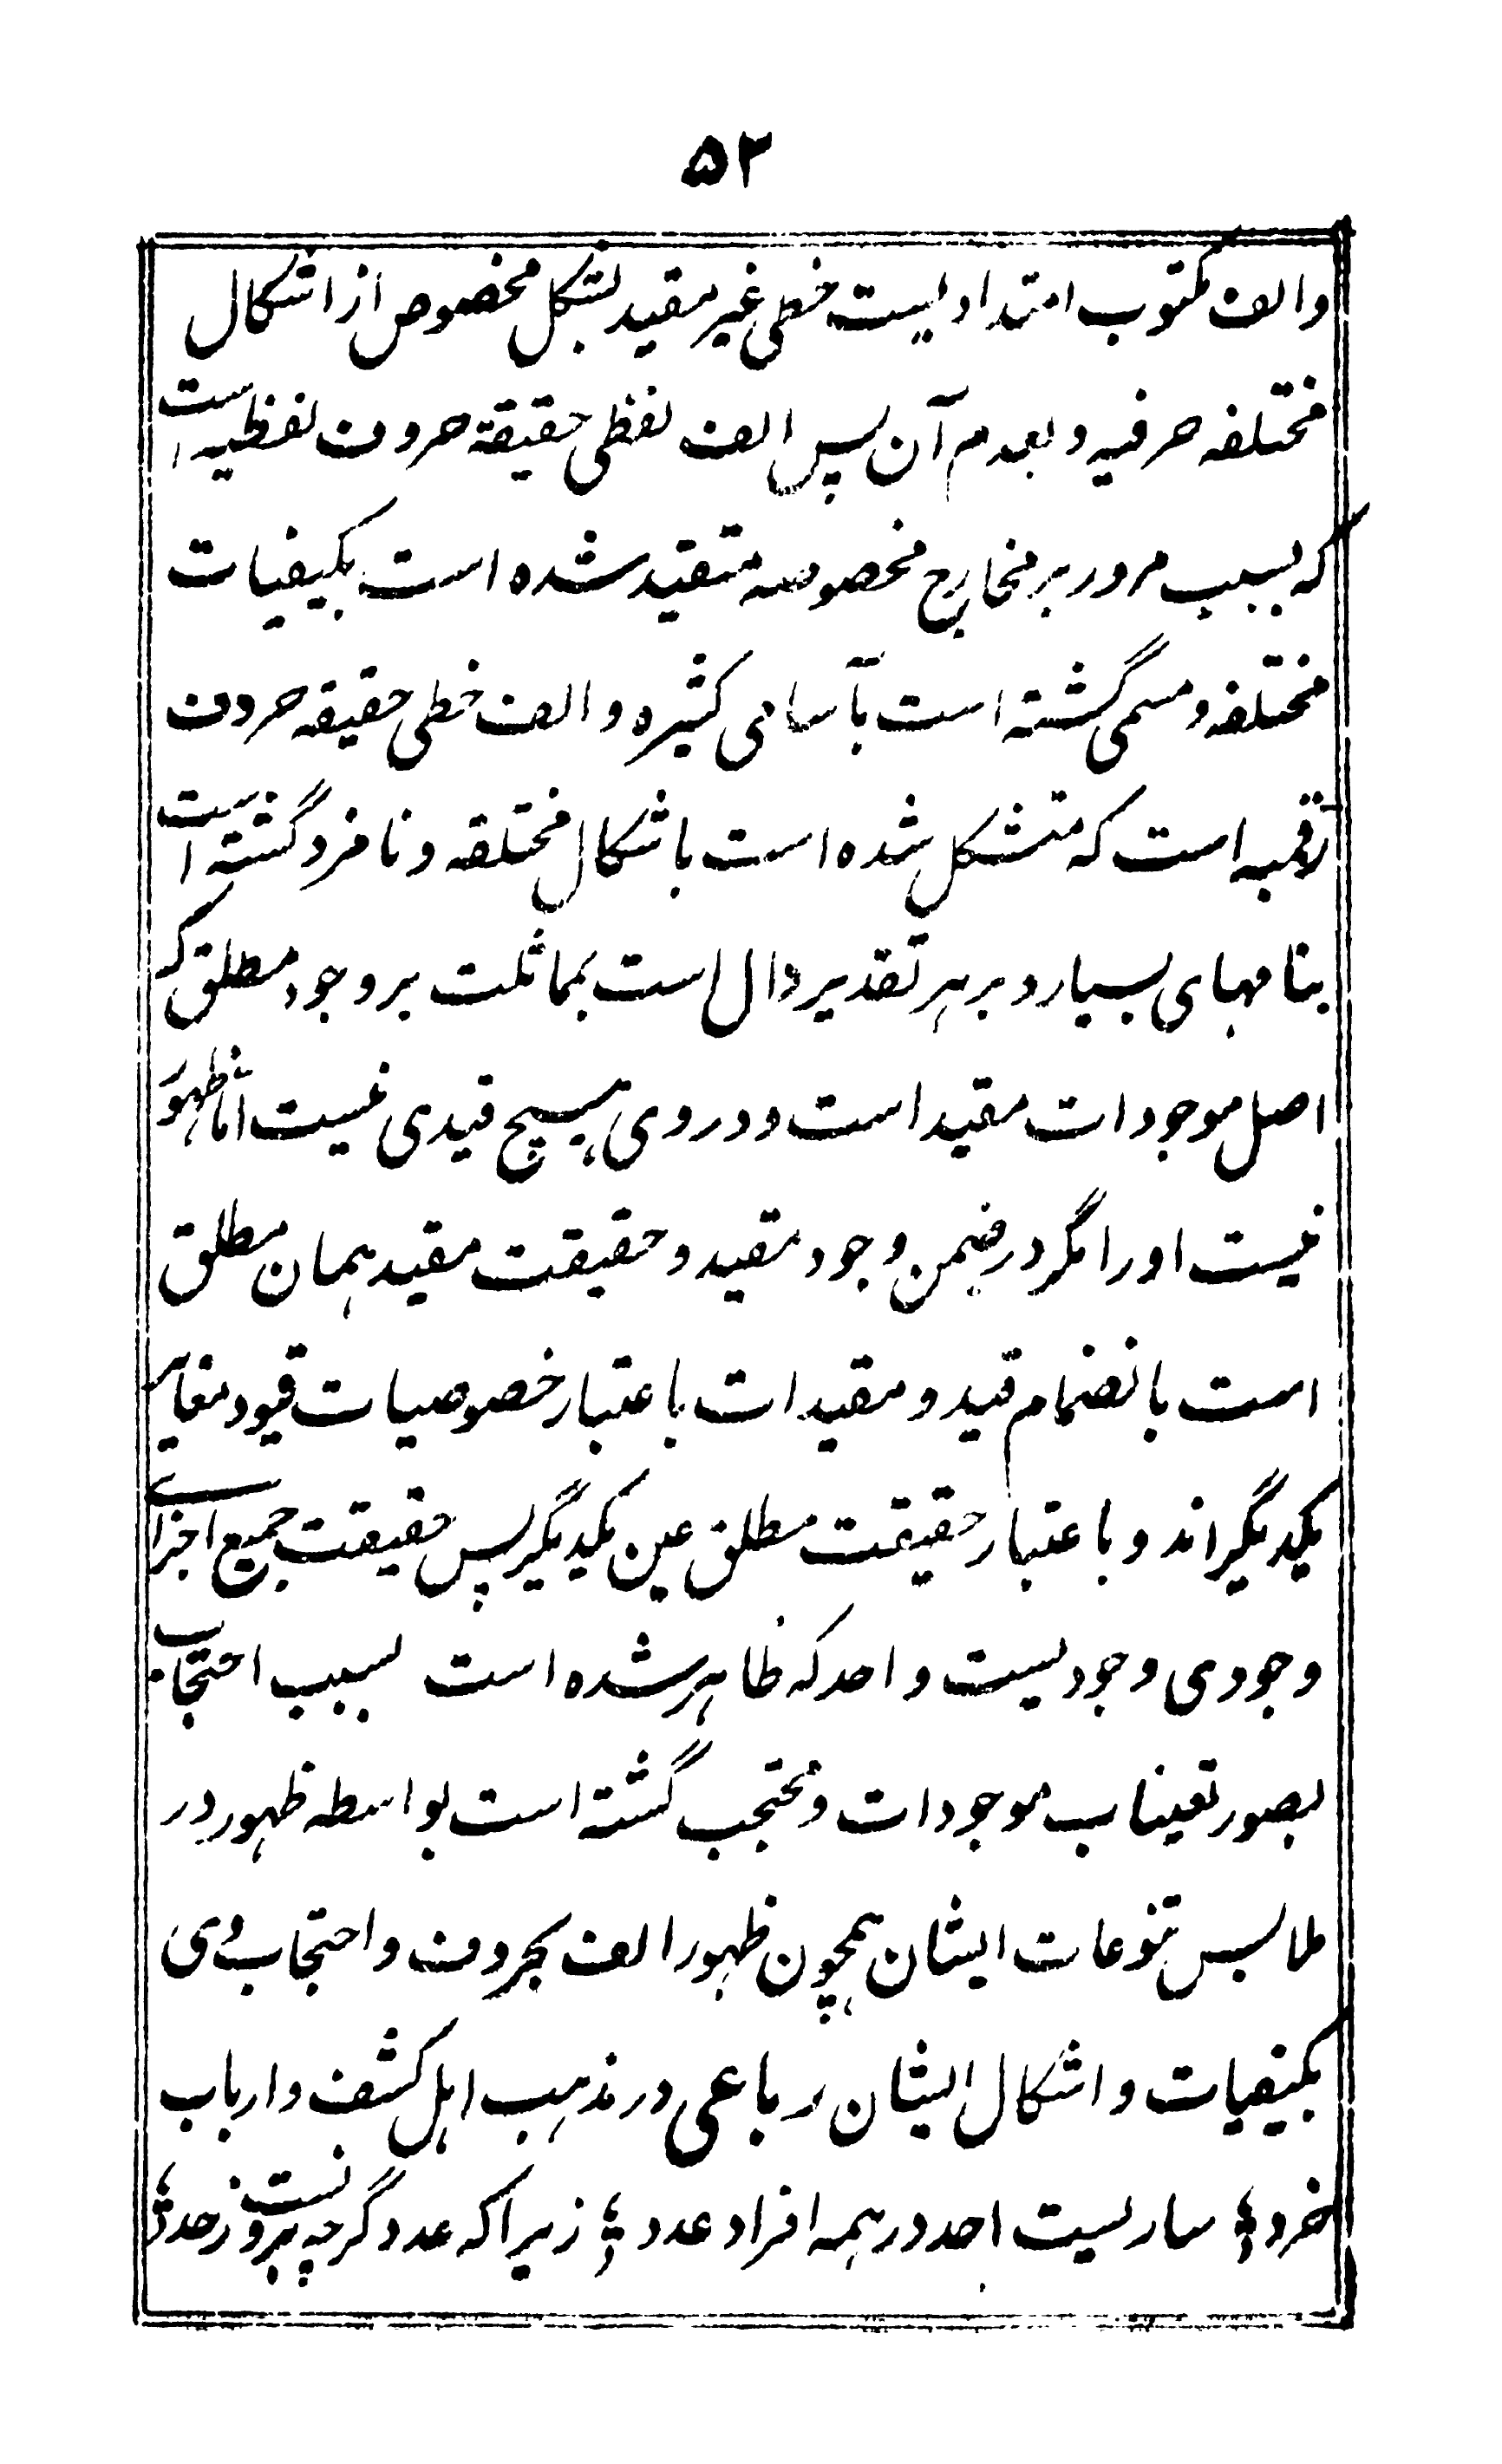 ۵۲
والف مکتوب امتدادیست خطی غیر مقید بشکل مخصوص از اشکال
مختلفه حرفیه و بعدم آن پس الف لفظی حقیقة حروف لفظیه است
که بسبب مرور بر مخارج مخصوصه متقید شده است بکیفیات
مختلفه و مسمی گشته است بآسامی کثیره و الف خطی حقیقه حروف
رقمیه است که متشکل شده است باشکال مختلفه و نامزد گشته است
بنامهای بسیار و بر هر تقدیر دال است بمماثلت بر وجود مطلق که
اصل موجودات مقید است و در وی هیچ قیدی نیست اما ظهور
نیست او را مگر در ضمن وجود مقید و حقیقت مقید همان مطلق
است بانضمام قید و مقیدات باعتبار خصوصیات قیود مغایر
یکدیگراند و باعتبار حقیقت مطلق عین یکدیگر پس حقیقت جمیع اجزای
وجودی وجودیست واحد که ظاهر شده است بسبب احتجاب
بصور تعینات موجودات و محتجب گشته است بواسطه ظهور در
ملابس تنوعات ایشان همچون ظهور الف بحروف و احتجاب وی
بکیفیات و اشکال ایشان رباعی در مذهب اهل کشف و ارباب
خرد ؛ ساریست احد در همه افراد عدد ؛ زیرا که عدد گرچه برونست ز حد ؛